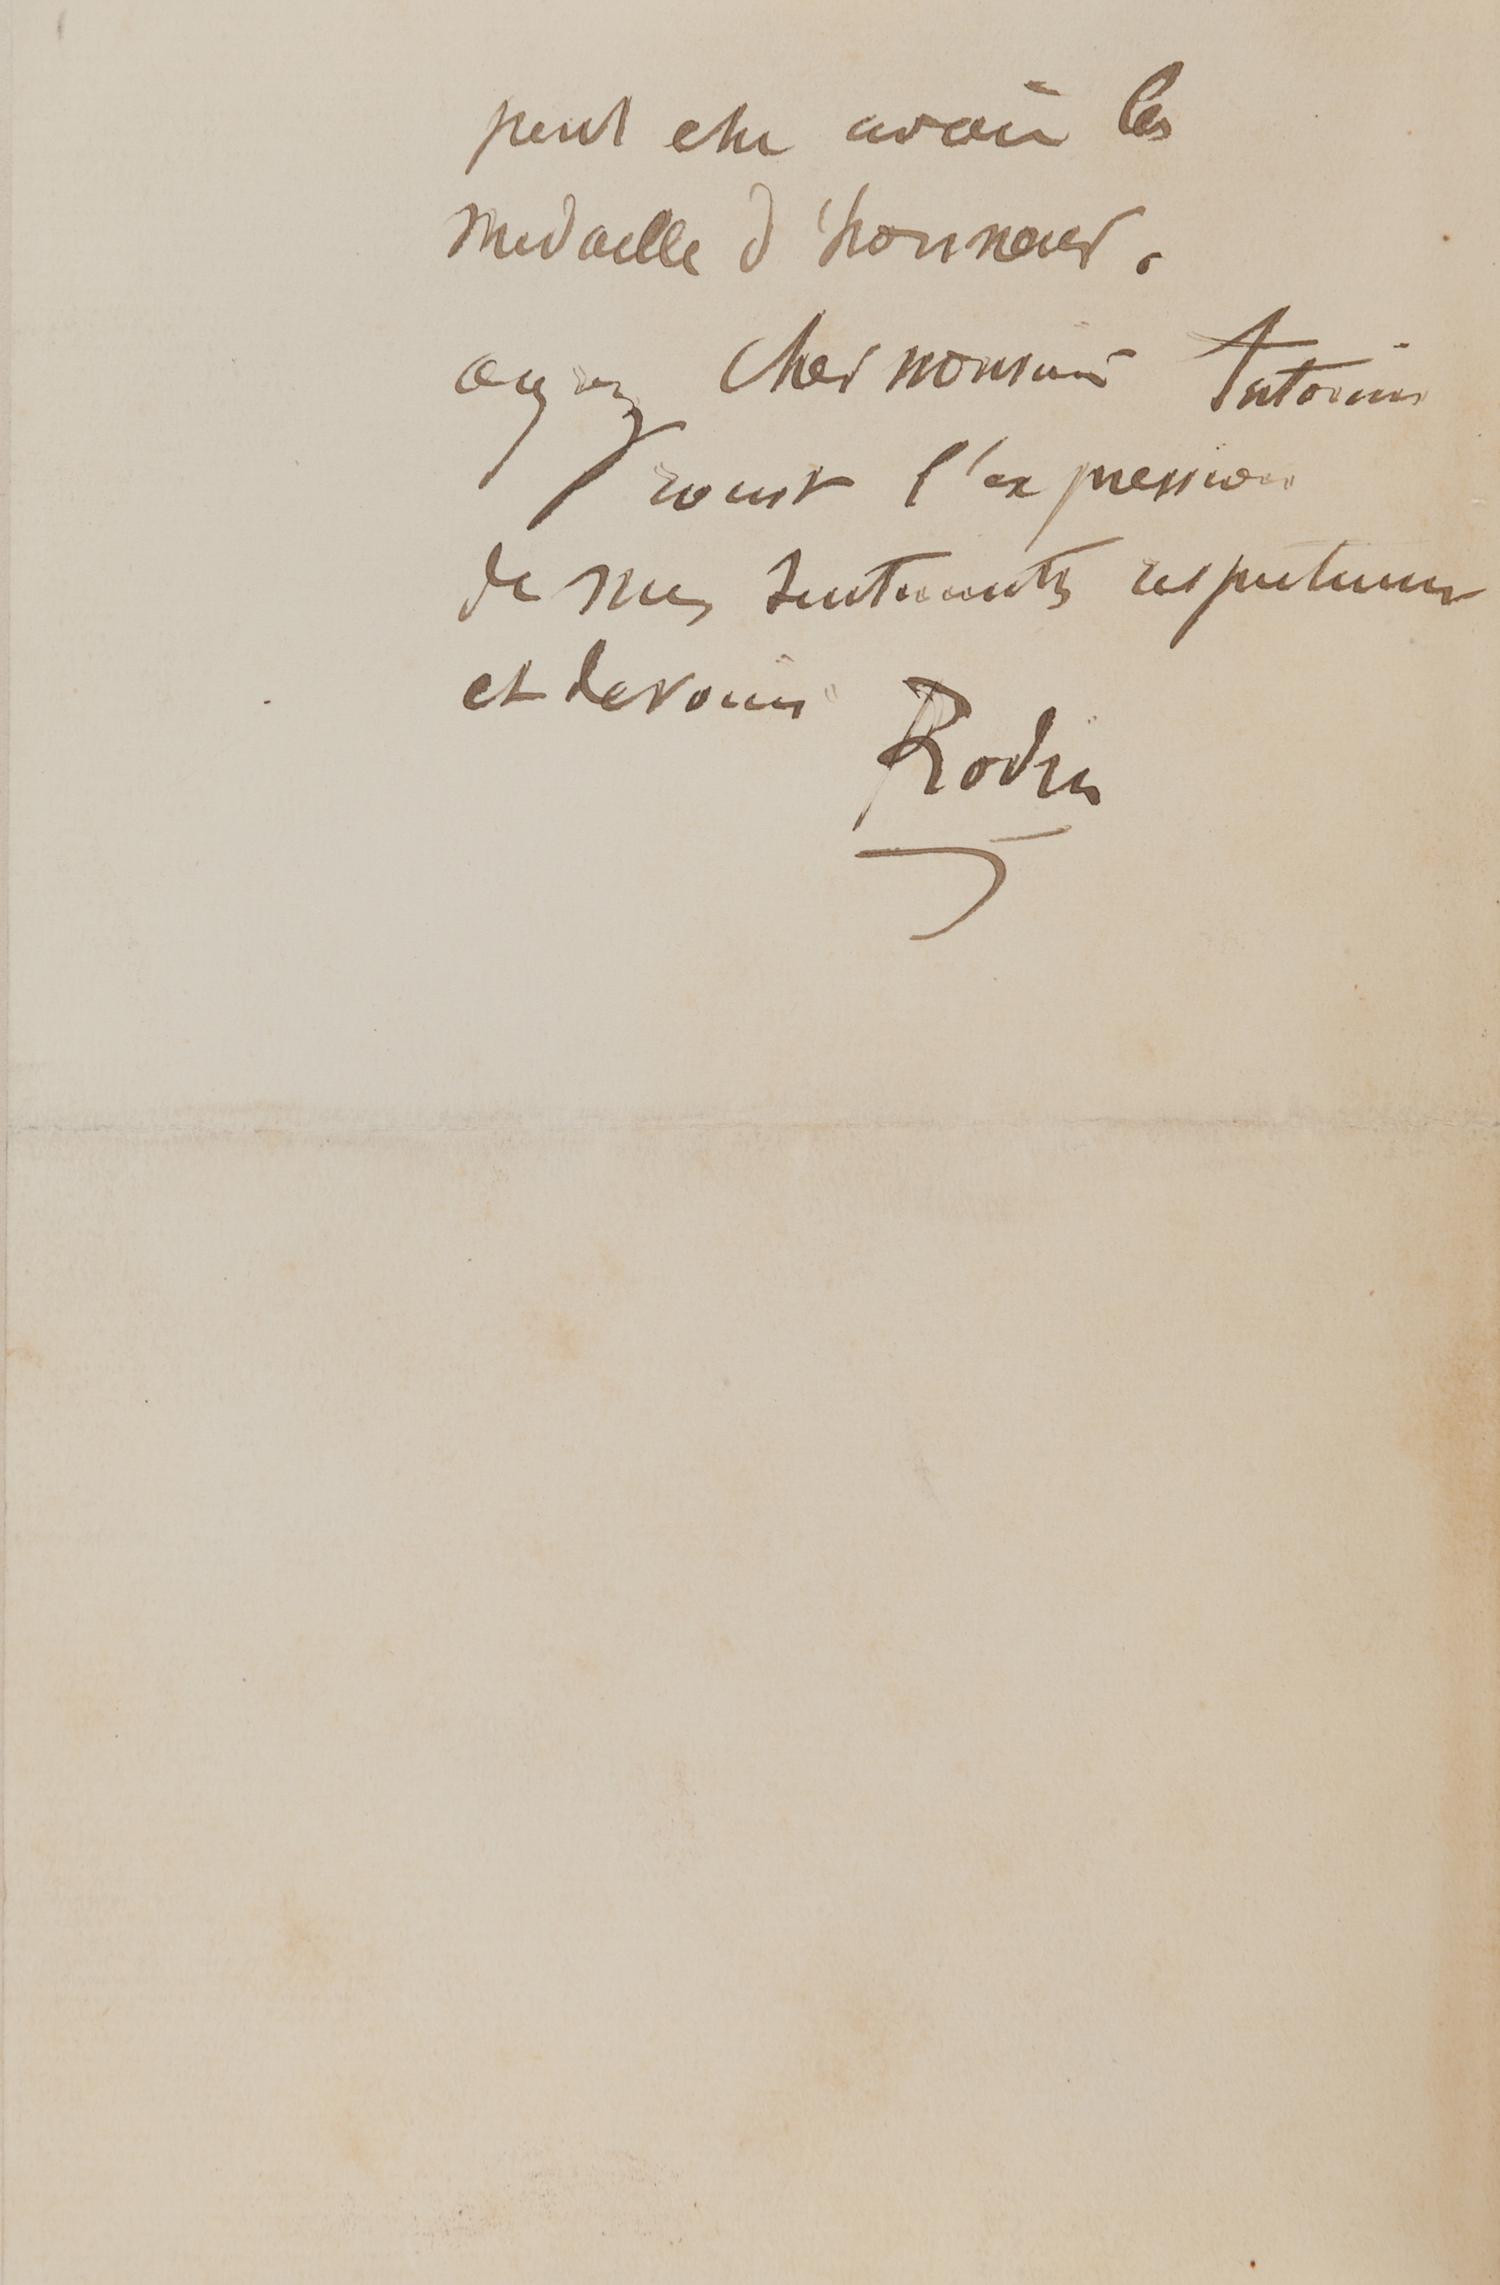 peut etre avoir les
medaille d'honneur.
agreez cher monsieur Antonin
Proust l'expression
de mes sentiments respectueux
et devoués
Rodin